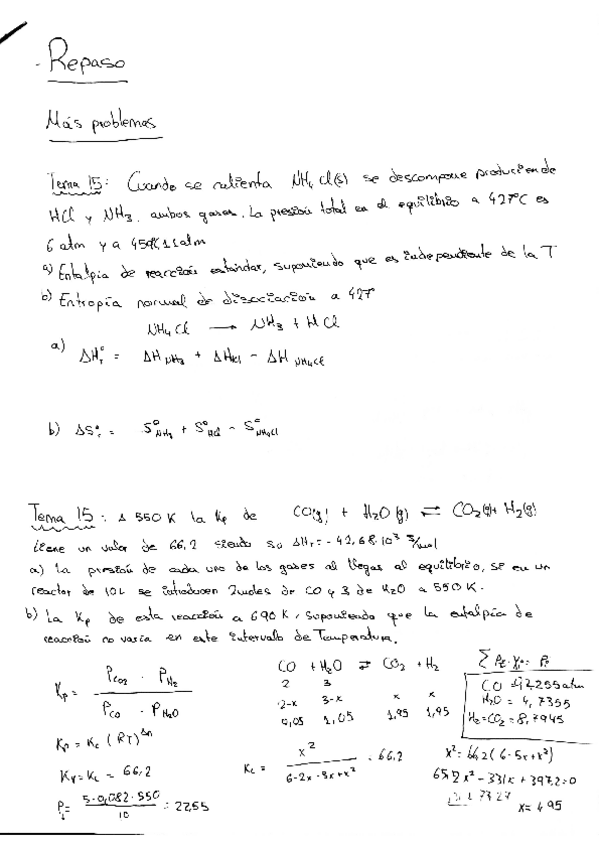 - Repaso
Más problemas
Tema 15: Cuando se calienta NH4Cl(s) se descompone produciendo
HCl y NH3, ambos gases. La presión total en el equilibrio a 427°C es
6 atm y a 459°C 11 atm
a) Entalpía de reacción estándar, suponiendo que es independiente de la T
b) Entropía normal de disociación a 427°
NH4Cl → NH3 + HCl
a) ΔHr° = ΔH NH3 + ΔHHCl - ΔH NH4Cl
b) ΔSr° = S°NH3 + S°HCl - S°NH4Cl
Tema 15: A 550 K la Kp de CO(g) + H2O(g) ⇄ CO2(g) + H2(g)
tiene un valor de 66,2 siendo su ΔHr = -42,68·10³ J/mol
a) La presión de cada uno de los gases al llegar al equilibrio, se en un
reactor de 10L se introducen 2 moles de CO y 3 de H2O a 550 K.
b) La Kp de esta reacción a 690 K, suponiendo que la entalpía de
reacción no varía en este intervalo de Temperatura.
Kp = PCO2 · PH2 / PCO · PH2O
CO + H2O ⇄ CO2 + H2
2 3
2-x 3-x x x
0,05 1,05 1,95 1,95
CO
H2O = 4,7355
H2=CO2 = 8,7945
Kp = Kc (RT)^Δn
Kp = Kc = 66,2
Kc = x² / 6-2x-3x+x² = 66,2
x² = 66,2(6-5x+x²)
65,2x² - 331x + 397,2 = 0
x = 1,95
P = 5·0,082·550 / 10 = 22,55